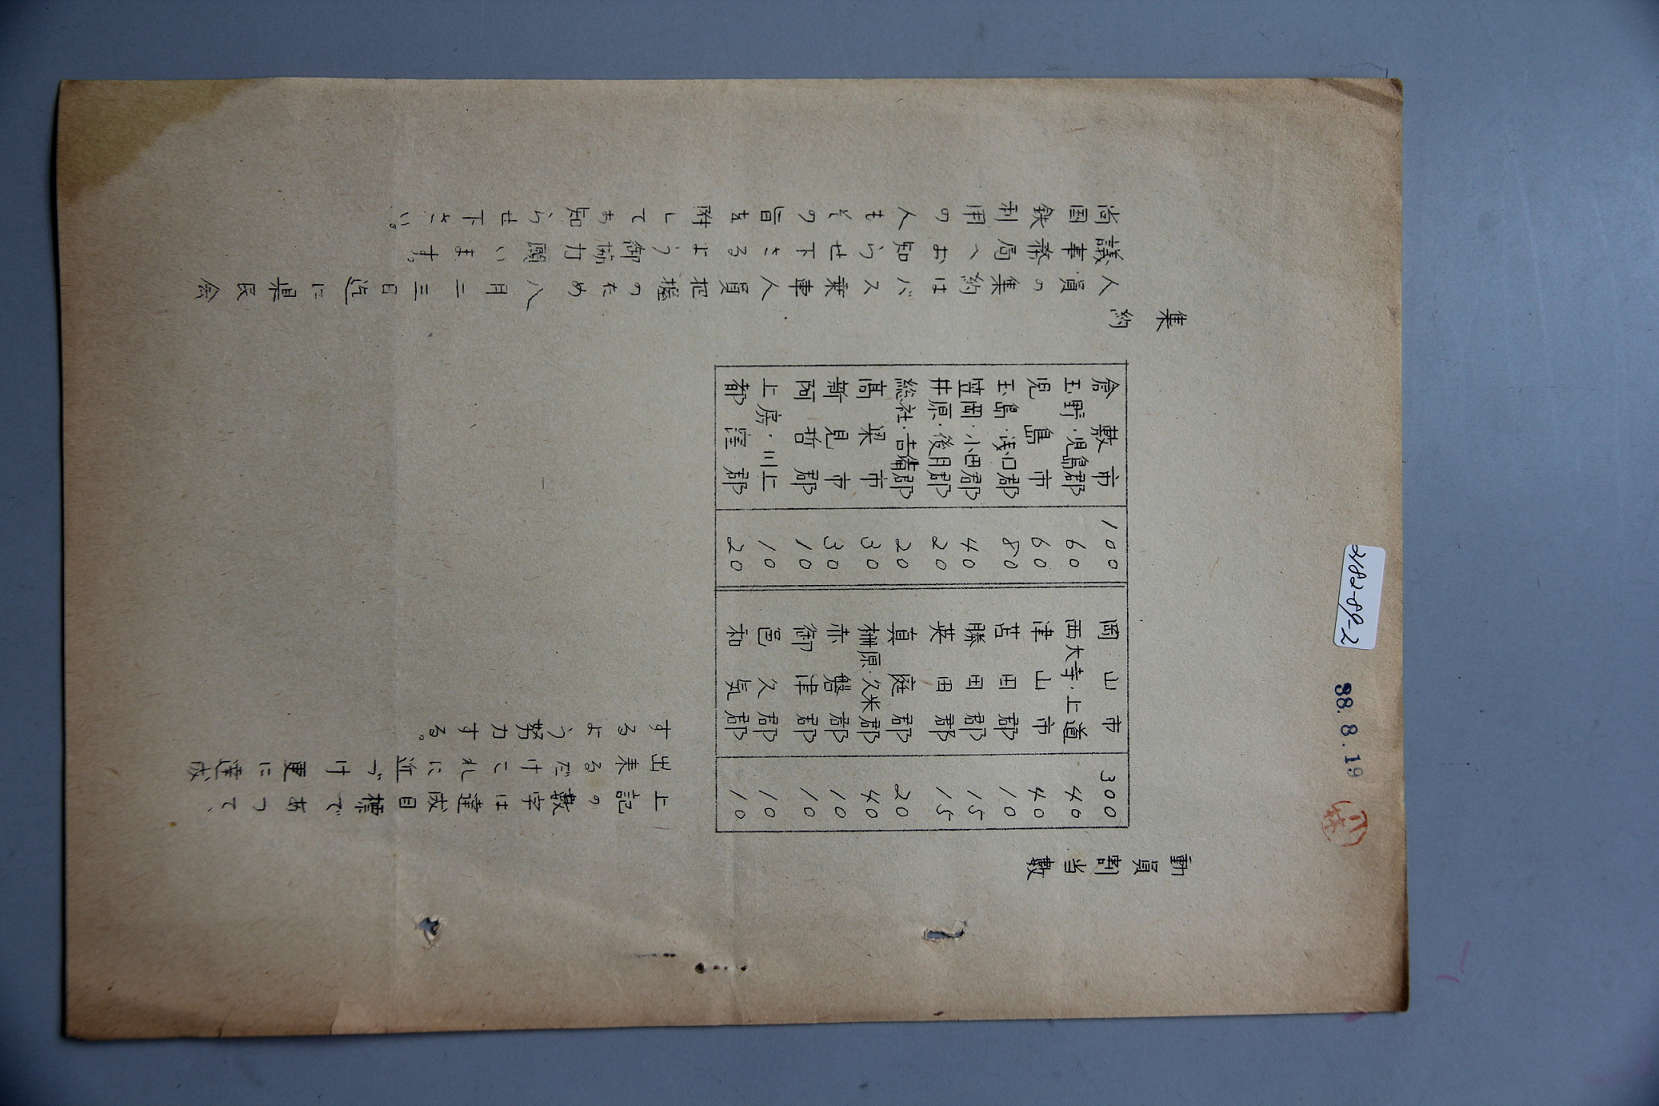 2182-89-2
38.8.19
動員割当数
倉敷市 100 岡山市 300
玉野・児島郡 60 西大寺・上道 40
児島市 60 津山市 40
玉島・浅口郡 80 苫田郡 10
笠岡・小田郡 40 勝田郡 15
井原・後月郡 20 英田郡 15
総社・吉備郡 20 真庭郡 20
高梁市 30 柵原・久米郡 40
新見市 30 赤磐郡 10
阿哲郡 10 御津郡 10
上房・川上 10 邑久郡 10
都窪郡 20 和気郡 10
上記の数字は達成目標であつて、
出来るだけこれに近づけ更に達成
するよう努力する。
集約
人員の集約はバス乗車人員把握のため八月二三日迄に県民会
議事務局へお知らせ下さるよう御協力願います。
尚国鉄利用の人もその旨を附してお知らせ下さい。